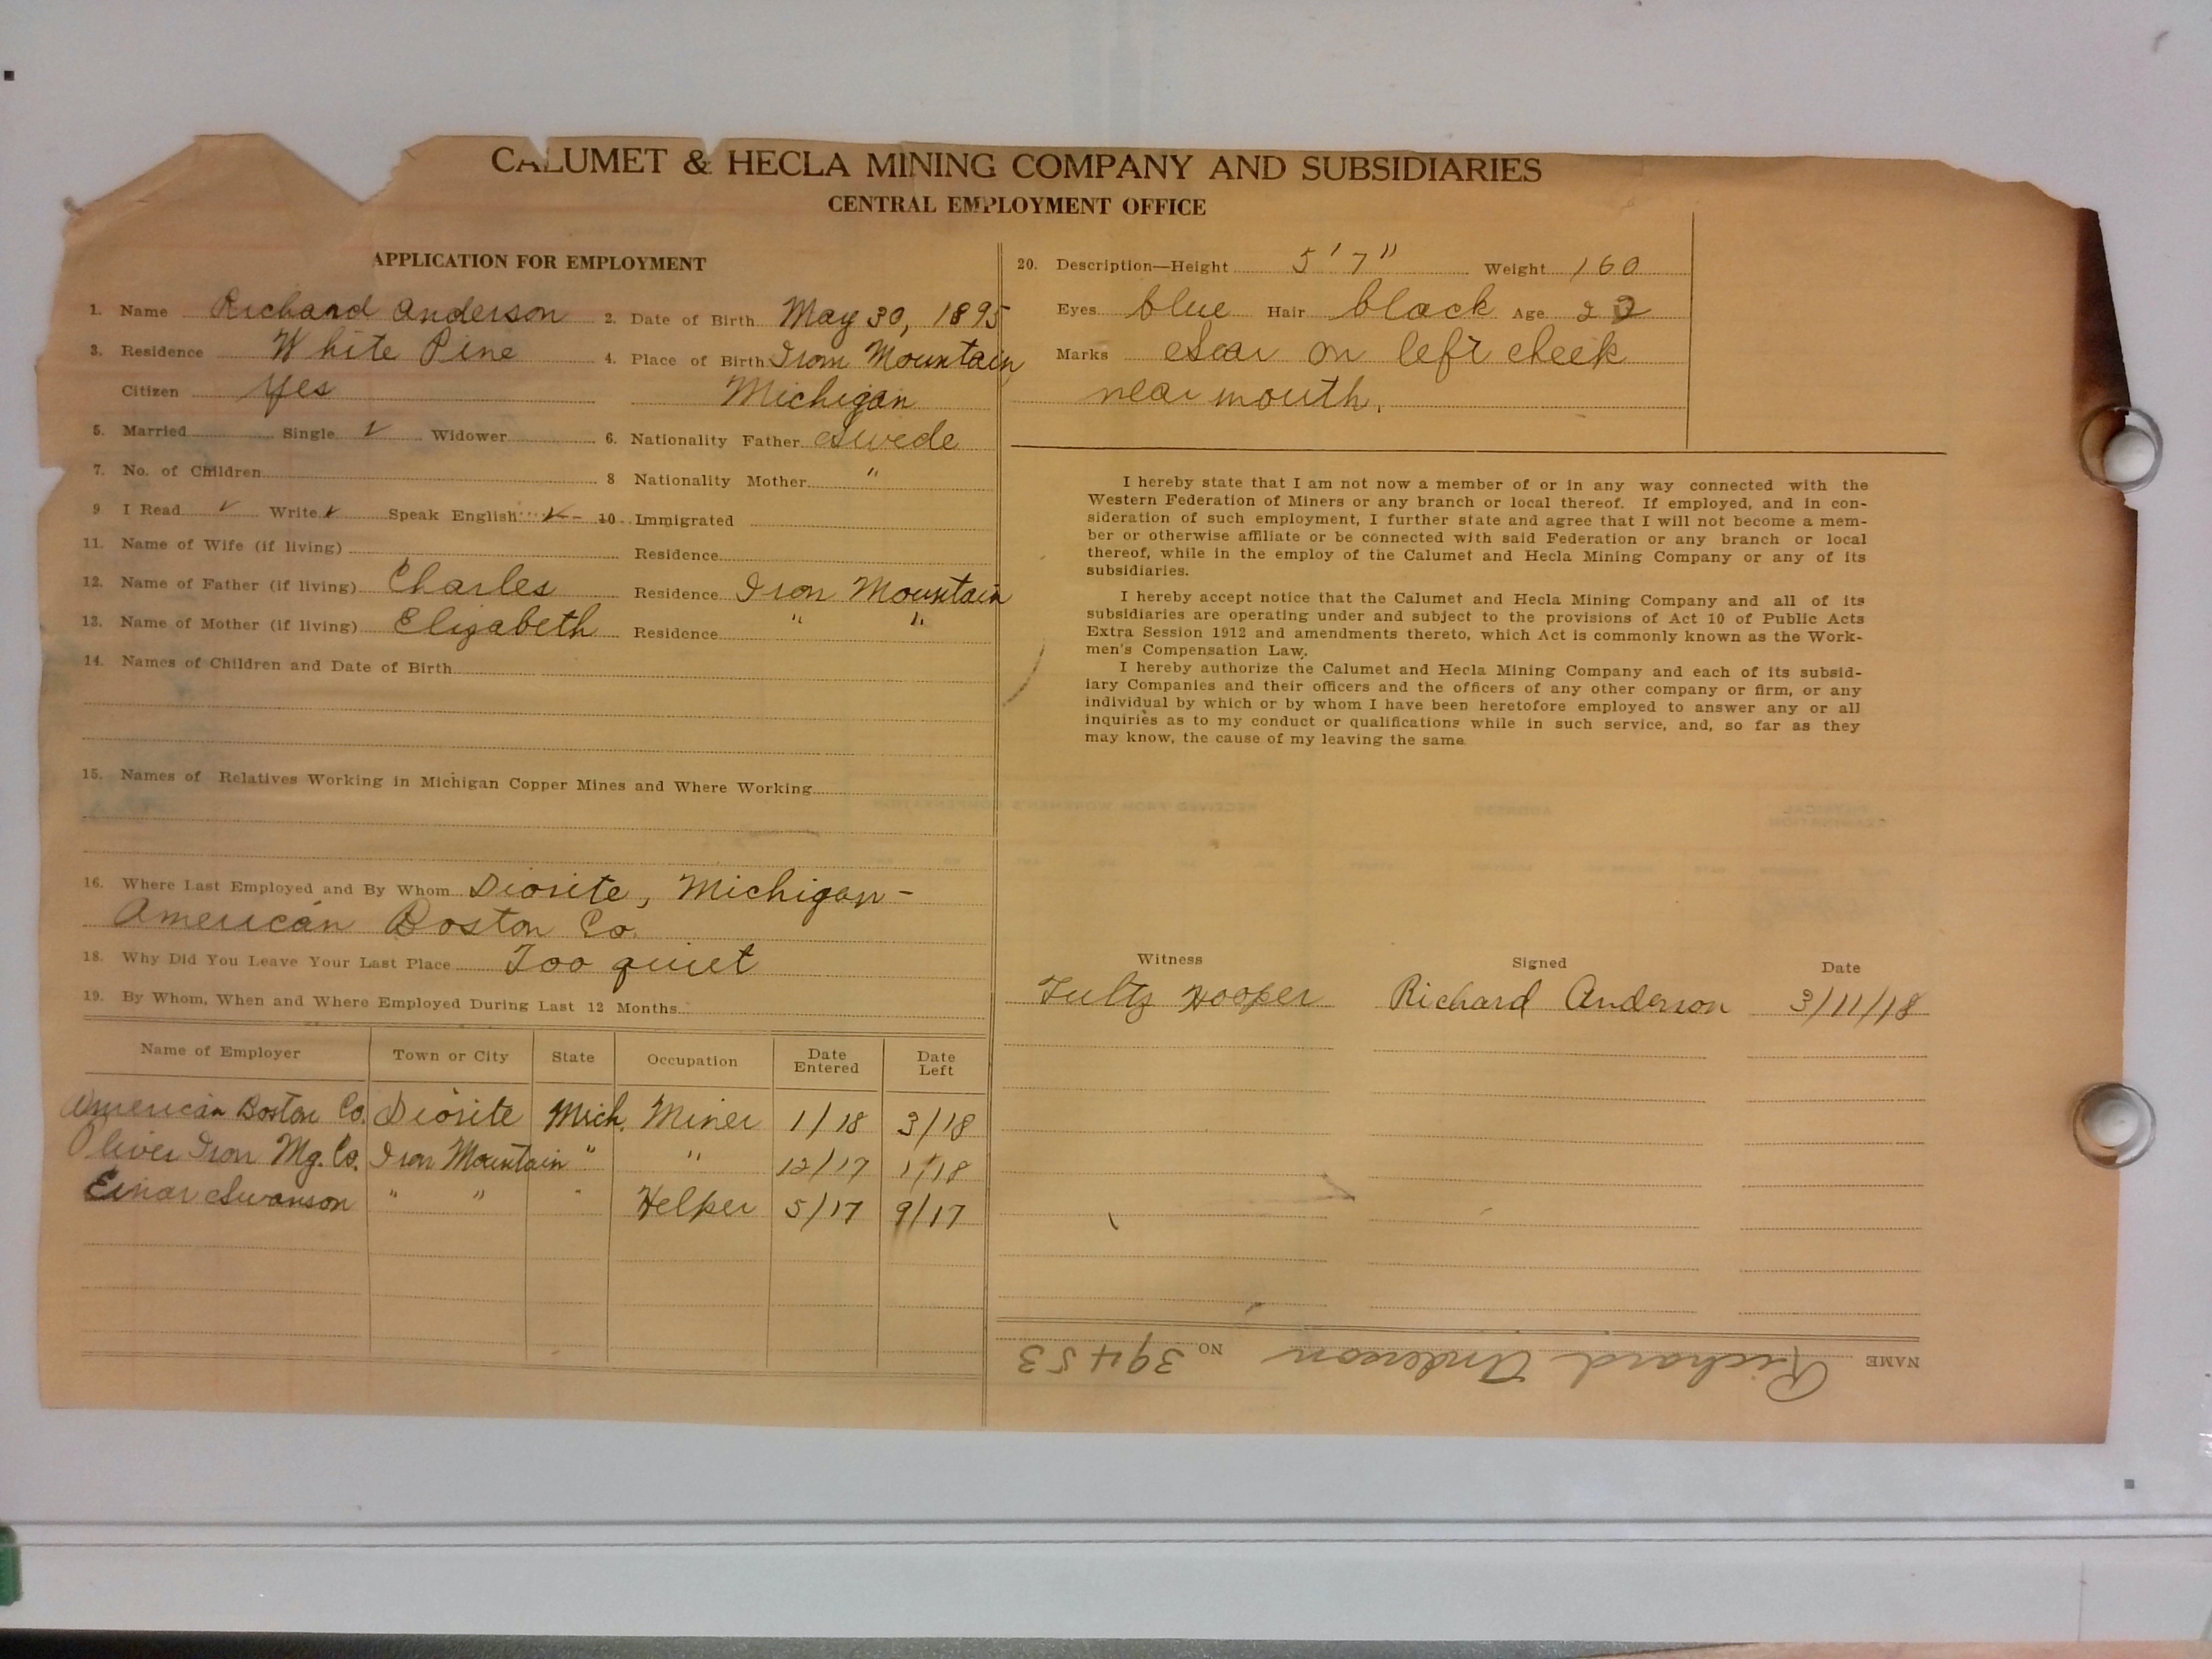 CALUMET & HECLA MINING COMPANY AND SUBSIDIARIES
CENTRAL EMPLOYMENT OFFICE
APPLICATION FOR EMPLOYMENT
1. Name Richard Anderson 2. Date of Birth May 30, 1895
3. Residence White Pine 4. Place of Birth Iron Mountain
Citizen Yes Michigan
5. Married Single ✓ Widower 6. Nationality Father Swede
7. No. of Children 8 Nationality Mother "
9 I Read ✓ Write ✓ Speak English ✓ 10 Immigrated
11. Name of Wife (if living) Residence
12. Name of Father (if living) Charles Residence Iron Mountain
13. Name of Mother (if living) Elizabeth Residence " "
14. Names of Children and Date of Birth
15. Names of Relatives Working in Michigan Copper Mines and Where Working
16. Where Last Employed and By Whom Diorite, Michigan -
American Boston Co.
18. Why Did You Leave Your Last Place Too quiet
19. By Whom, When and Where Employed During Last 12 Months
Name of Employer Town or City State Occupation Date Entered Date Left
American Boston Co. Diorite Mich. Miner 1/18 3/18
Oliver Iron Mg. Co. Iron Mountain " " 12/17 1/18
Einar Swanson " " " Helper 5/17 9/17
20. Description—Height 5' 7" Weight 160
Eyes blue Hair black Age 22
Marks Scar on left cheek
near mouth.
I hereby state that I am not now a member of or in any way connected with the
Western Federation of Miners or any branch or local thereof. If employed, and in con-
sideration of such employment, I further state and agree that I will not become a mem-
ber or otherwise affiliate or be connected with said Federation or any branch or local
thereof, while in the employ of the Calumet and Hecla Mining Company or any of its
subsidiaries.
I hereby accept notice that the Calumet and Hecla Mining Company and all of its
subsidiaries are operating under and subject to the provisions of Act 10 of Public Acts
Extra Session 1912 and amendments thereto, which Act is commonly known as the Work-
men's Compensation Law.
I hereby authorize the Calumet and Hecla Mining Company and each of its subsid-
iary Companies and their officers and the officers of any other company or firm, or any
individual by which or by whom I have been heretofore employed to answer any or all
inquiries as to my conduct or qualifications while in such service, and, so far as they
may know, the cause of my leaving the same.
Witness Signed Date
Hooper Richard Anderson 3/11/18
NAME Richard Anderson NO. 39453